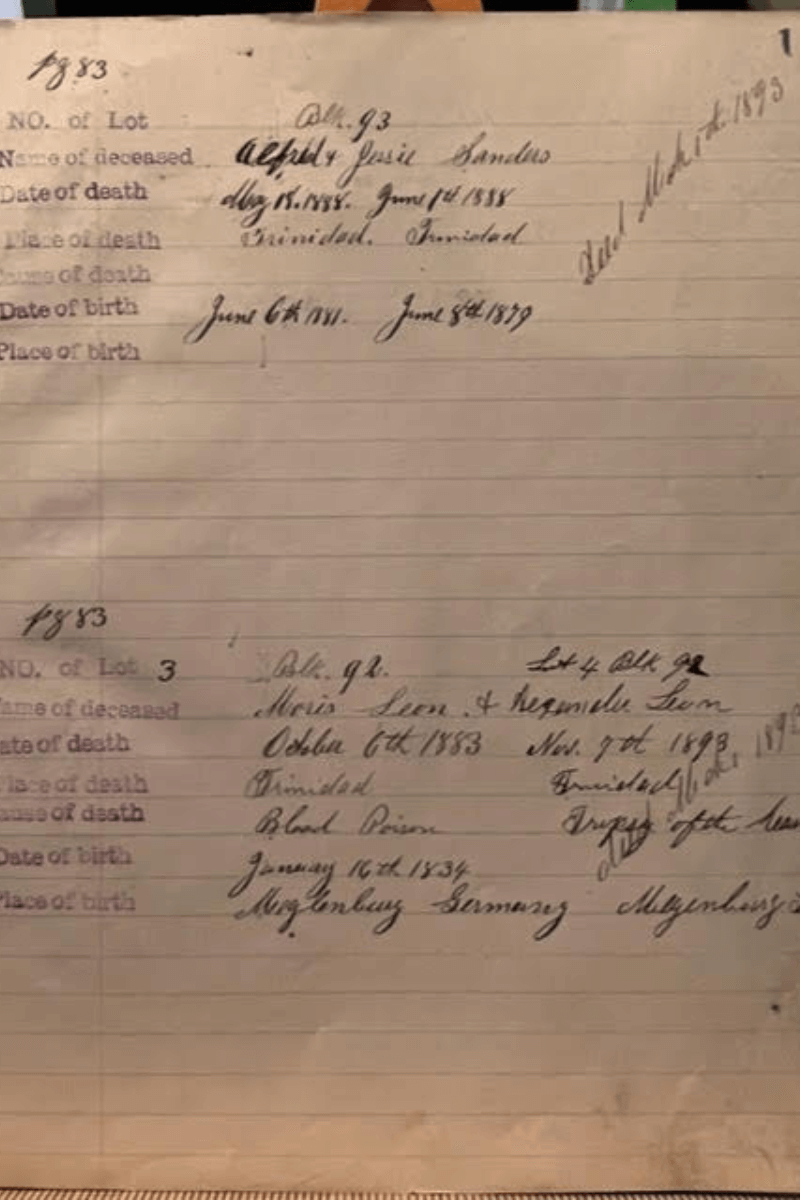 1
pg 83
NO. of Lot Blk. 93
Name of deceased Alfred & Jessie Sanders
Date of death May 18. 1888. June 1st 1888
Place of death Trinidad. Trinidad
Cause of death
Date of birth June 6th 1881. June 8th 1879
Place of birth
1893
pg 83
NO. of Lot 3 Blk. 92. Lot 4 Blk 92
ame of deceased Moris Leon & Leon
ate of death October 6th 1883 Nov. 7th 1893
lace of death Trinidad Trinidad
ause of death Blood Poison of the
Date of birth January 16th 1834
Place of birth Germany